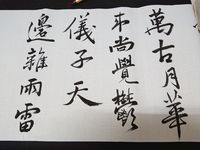 萬古月華
本尚覺鬱
儀子天
邊雜雨雷